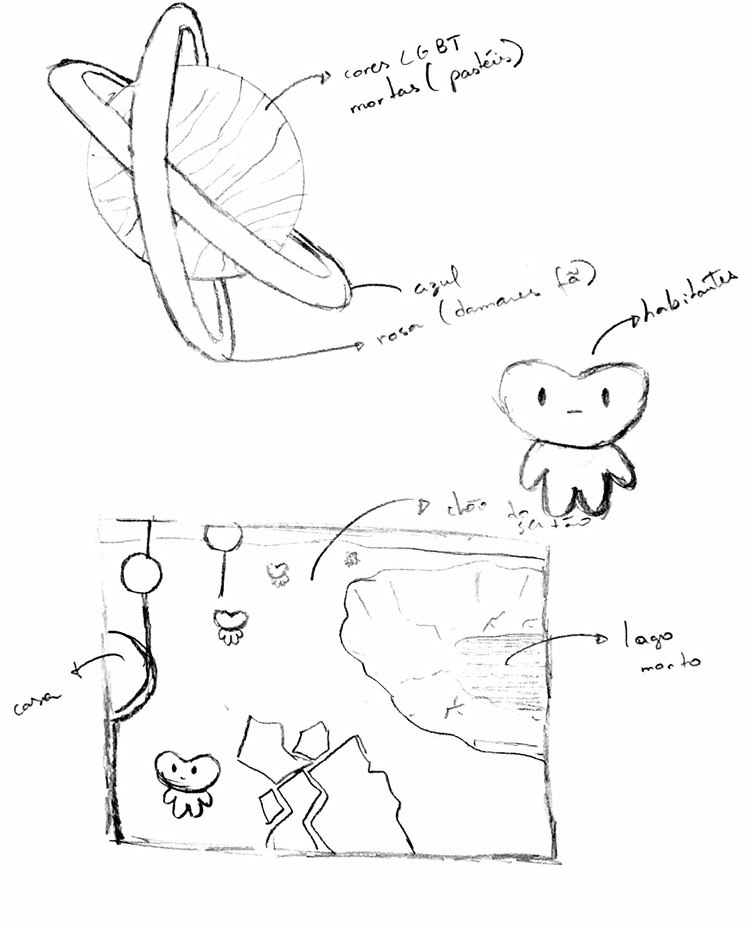 cores LGBT
mortas (pastéis)
azul
rosa (damares fã)
habitantes
chão do
sertão
lago
morto
casa